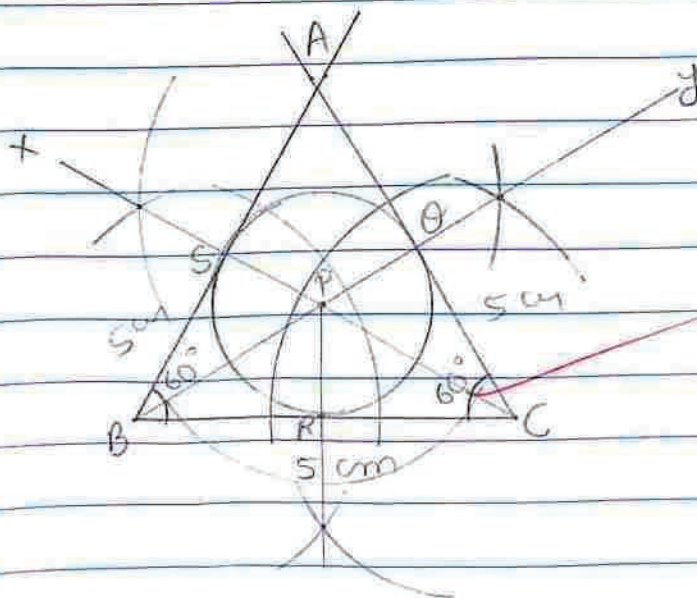 A
y
x
S
Q
P
5 cm
5 cm
60°
60°
B
R
C
5 cm